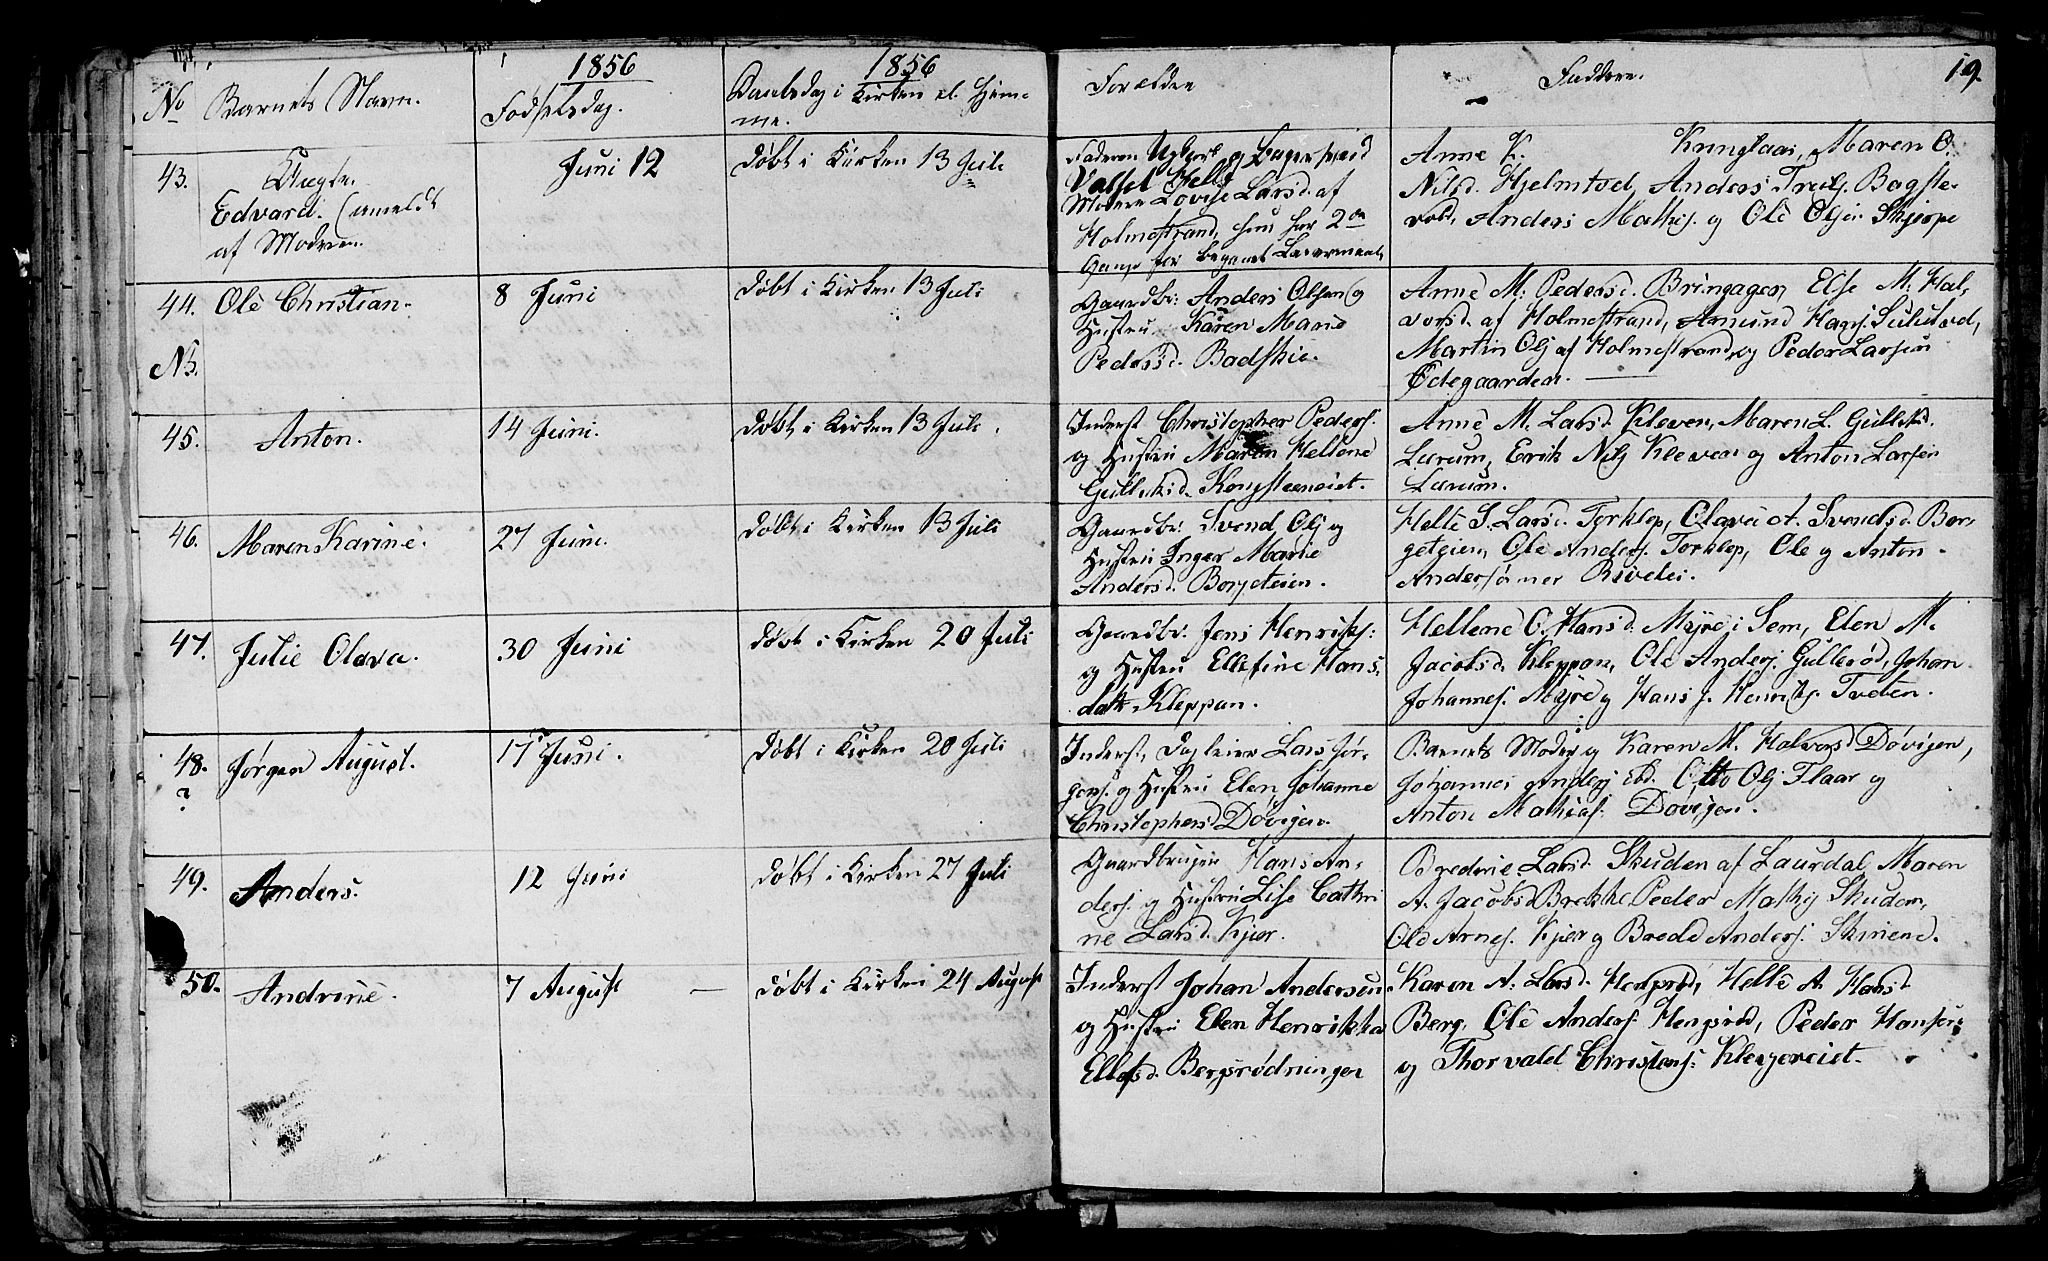 19.
1856
1856
No
Barnets Navn.
Fødselsdag.
Daabsdag i Kirken el. Hjem-
me.
Forældre
Faddere.
43.
Uægte.
Edvard. (anmeldt
af Modren.
Juni 12
Døbt i Kirken 13 Juli
Faderen Ugivt og
Moderen Lovise Larsd. af
Holmestrand, hun har 2den
Gange før begaaet Leiermaal,
Anne K. Maren O.
Nilsd. Hjelmtvel, Anders Trulſ. Bagste-
vold, Anders Mathiſ. og Ole Olſen Skjerpe
44.
Ole Christian.
8 Juni
Døbt i Kirken 13 Juli
Gaardbr: Anders Olsen og
Hustru Karen Marie
Pedersd. Badskie.
Anne M. Pedersd. Bringager, Else M. Hal-
vorsd. af Holmestrand, Amund Hanſ.
Martin Olſ af Holmestrand, og Peder Larsen
Ødegaarden.
NB.
45.
Anton.
14 Juni.
Døbt i Kirken 13 Juli.
Inderst Christopher Pederſ.
og Hustru Maren Hellene
Gulliksd. Kongsteneiet.
Anne M. Larsd Kleven, Maren L. Gulliksd.
Larum, Erik Nilſ Kleven og Anton Larsen
Larum.
46.
Maren Karine.
27 Juni.
Døbt i Kirken 13 Juli
Gaardbr: Svend Olſ og
Hustru Inger Marie
Andersd. Borgeteien.
Helle S. Larsd. Torklep, Olava A. Svendsd. Bor-
geteien, Ole Anderſ. Torklep, Ole og Anton
Andersønner
47.
Julie Olava.
30 Juni
Døbt i Kirken 20 Juli
Gaardbr. Jens Henrikſ:
og Hustru Ellefine Hans-
datr. Kleppan.
Hellene O. Hansd. Myre i Sem, Elen M.
Jacobsd. Kleppan, Ole Anderſ. Gullerød, Johan
Johanneſ. Myre og Hans J. Henrikſ. Tveten.
48.
?
Jørgen August.
17 Juni.
Døbt i Kirken 20 Juli
Inderst, Dagleier Lars Jør-
genſ. og Hustru Elen Johanne
Christophersd Døvigen.
Barnets Moder og Karen M. Halvorsd Døvigen,
Johannes Anderſ Ebd. Otto Olſ Flaar og
Anton Mathiaſ. Døvigen.
49.
Anders.
12 Juni
Døbt i Kirken 27 Juli
Gaardbruger Hans An-
derſ. og Hustru Lise Cathri
ne Larsd. Kjær.
Larsd Skuden af Laurdal, Maren
A. Jacobsd Brekke, Peder Mathiſ Skuden,
Ole Arneſ. Kjær og Brede Anderſ.
50.
Andrine.
7 August
Døbt i Kirken 24 August
Inderst Johan Andersen
og Hustru Elen Henrikka
Ellefsd. Bergsrødningen
Karen A. Larsd. Hengsrød, Helle A. Hansd
Berg, Ole Anderſ. Hengsrød, Peder Hansen
og Thorvald Christenſ.